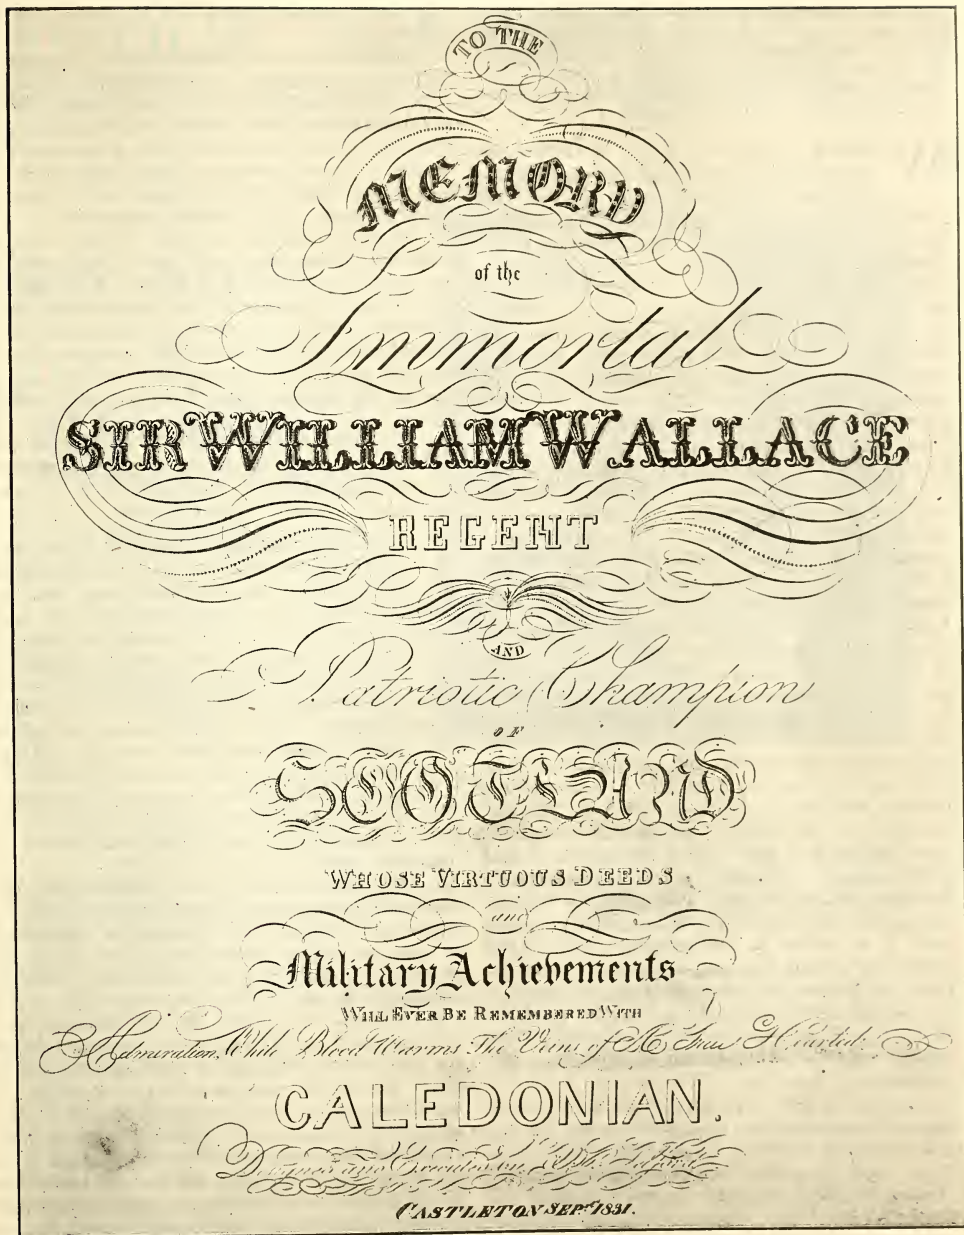 TO THE
MEMORY
of the
Immortal
SIR WILLIAM WALLACE
REGENT
AND
Patriotic Champion
OF
SCOTLAND
WHOSE VIRTUOUS DEEDS
and
Military Achievements
WILL EVER BE REMEMBERED WITH
Admiration, While Blood Warms The Veins of A True Hearted
CALEDONIAN.
Designed and Executed by
CASTLETON SEPT. 1831.